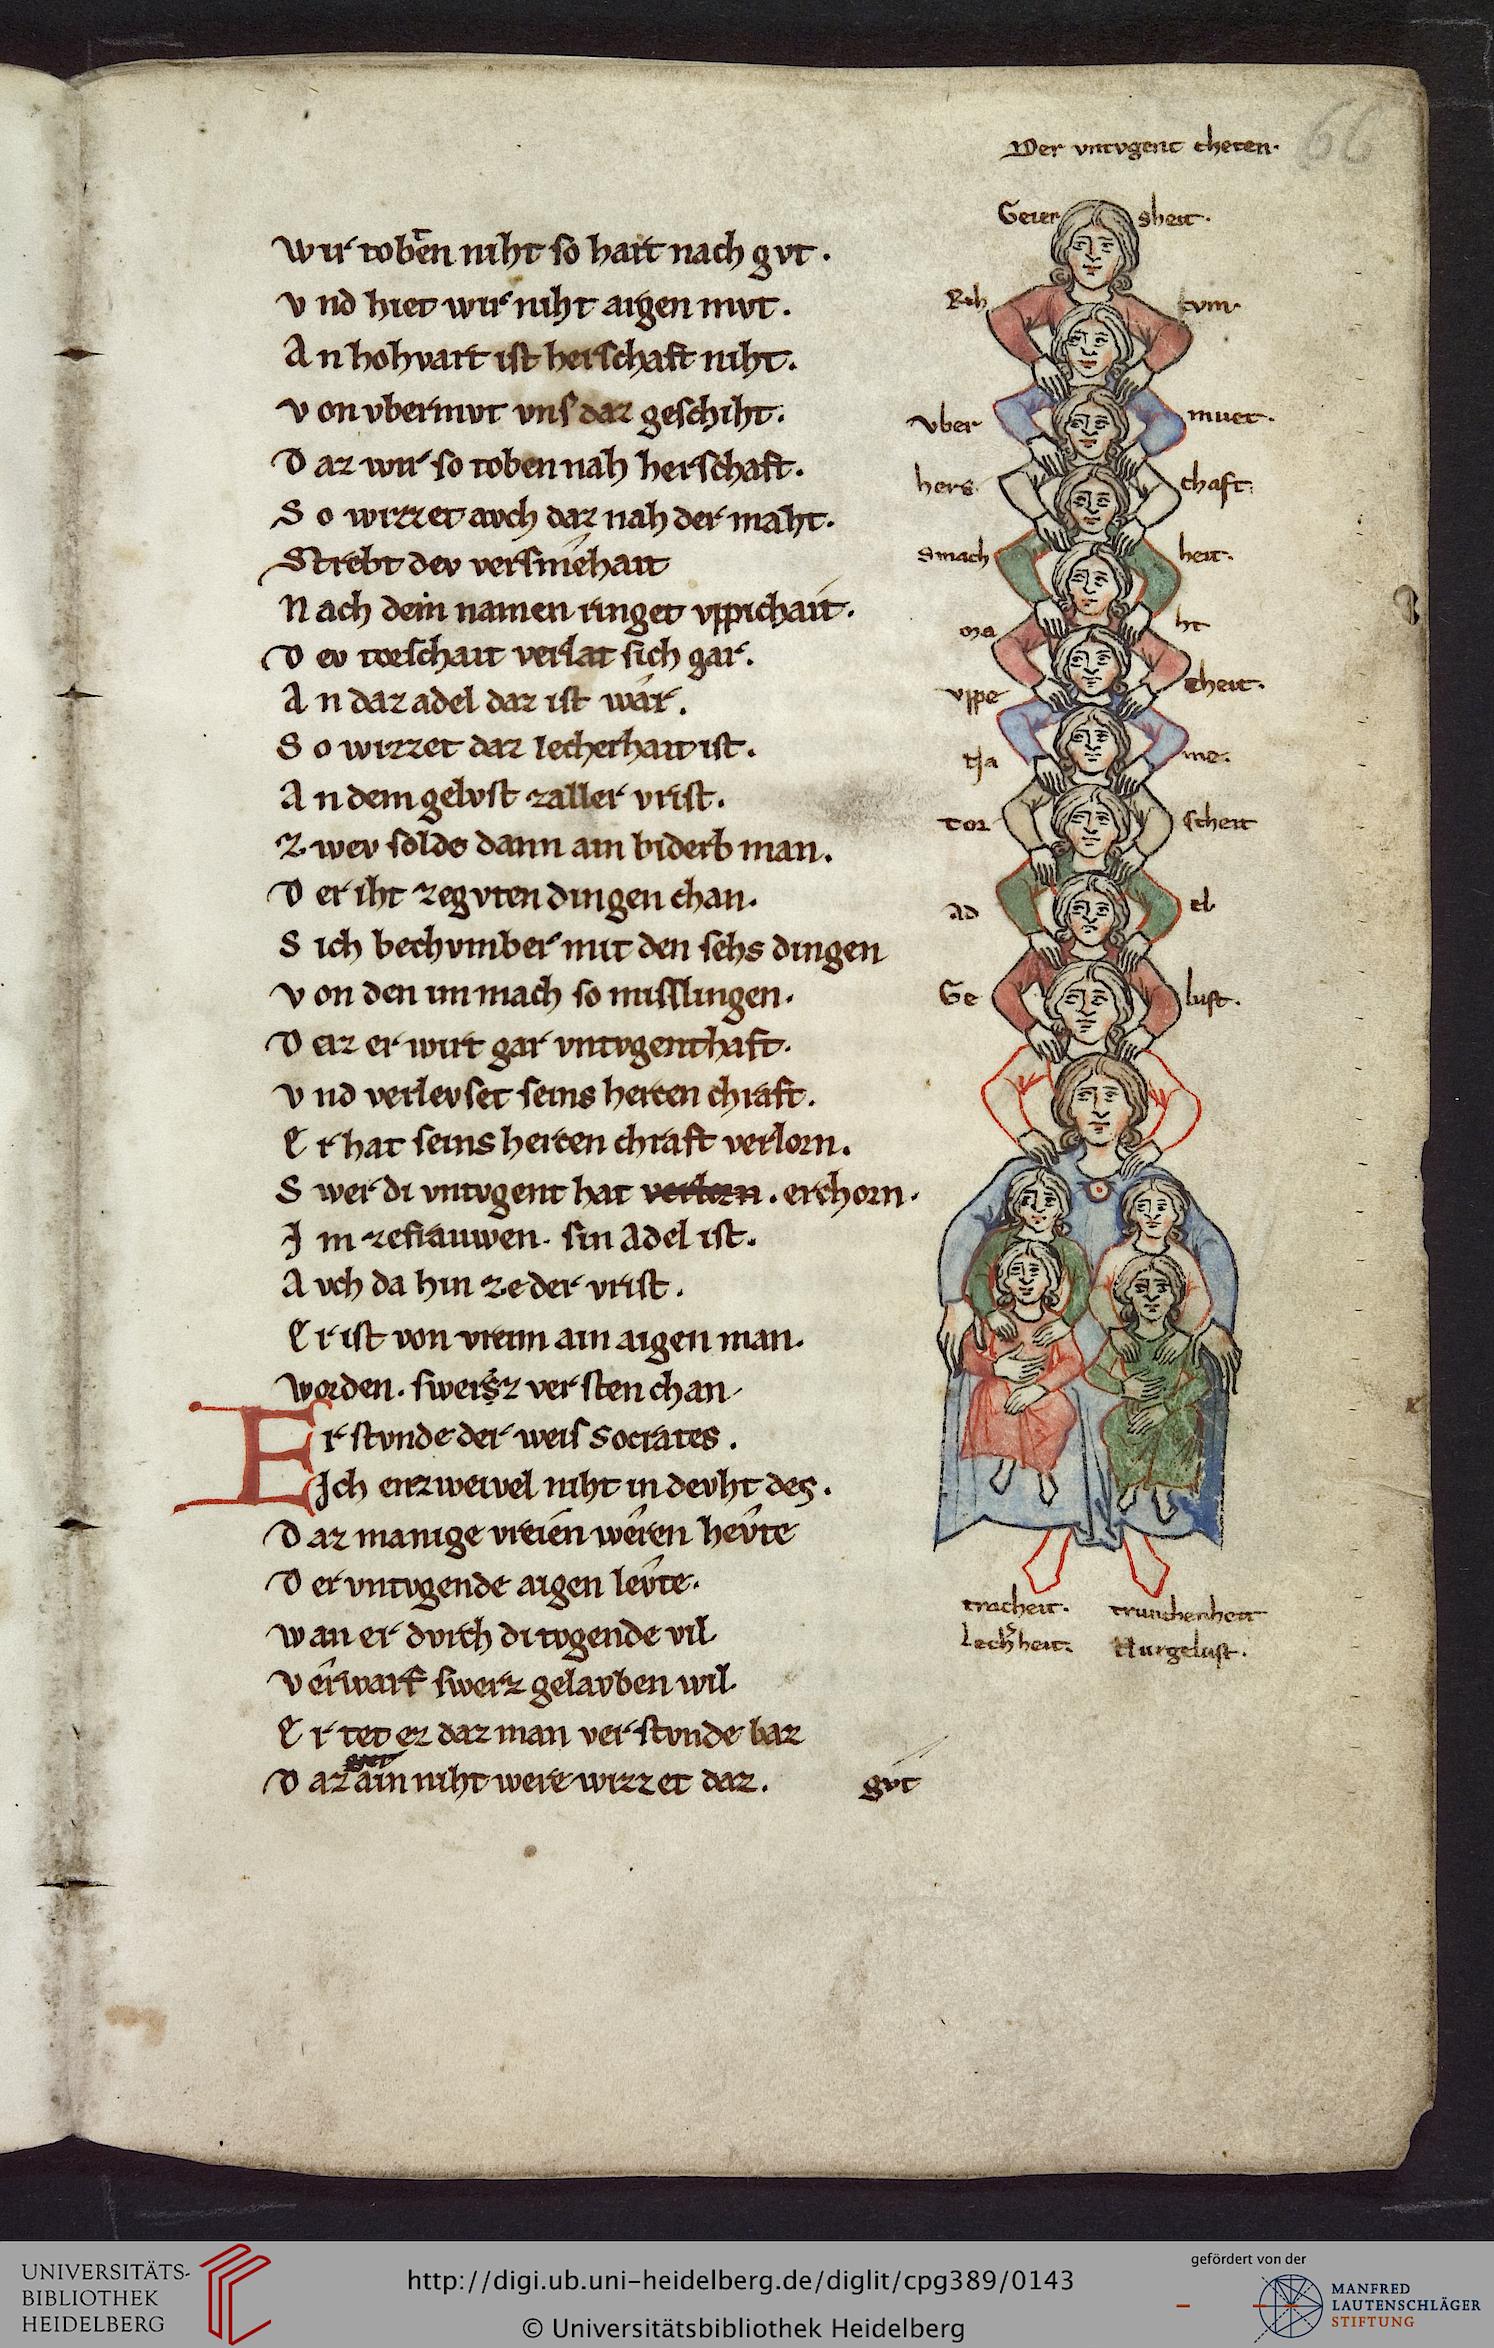 66
Der vntvgent cheten.
Geier sheit.
Rih tvm.
vber muet.
hers chaft.
smach heit.
ma ht
vppe cheit.
na me.
tor scheit
ad el
Ge lust.
tracheit. trunchenheit
lecherheit. Hurgelust.
Wir toben niht so hart nach gvt.
Vnd hiet wir niht aigen mvt.
An hohvart ist herschaft niht.
Von vbermvt vns daz geschiht.
Daz wir so toben nah herschaft.
So wizzet avch daz nah der maht.
Strebt dev versmehait
Nach dem namen ringet vppichait.
Dev torschait verlat sich gar.
An daz adel daz ist war.
So wizzet daz lecherhait ist.
An dem gelvst zaller vrist.
Zwev solde dann ain biderb man.
Der iht zegvten dingen chan.
Sich bechvmber mit den sehs dingen
Von den im mach so misslingen.
Deiz er wirt gar vntvgenthaft.
Vnd verlevset seins herten chraft.
Er hat seins herten chraft verlorn.
Swer di vntvgent hat verlorn. erchorn.
Im zefrauwen. sin adel ist.
Avch da hin ze der vrist.
Er ist von vreim ain aigen man.
Worden. swer sz versten chan
Er stvnde der weis Socrates.
Ich enzweivel niht in devht des.
Daz manige vreien weren hevte
Der vntvgende aigen levte.
Wan er dvrch di tvgende vil
Verwarf swerz gelavben wil.
Er tet ez daz man verstvnde baz
gvt
Daz ain niht were wizzet daz. gvt
UNIVERSITÄTS-
BIBLIOTHEK
HEIDELBERG
http://digi.ub.uni-heidelberg.de/diglit/cpg389/0143
© Universitätsbibliothek Heidelberg
gefördert von der
MANFRED
LAUTENSCHLÄGER
STIFTUNG